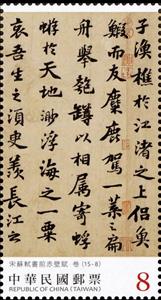 子漁樵於江渚之上侶魚
鰕而友麋鹿駕一葉之扁
舟舉匏罇以相屬寄蜉
蝣於天地渺浮海之一粟
哀吾生之須臾羨長江之
宋蘇軾書前赤壁賦 卷 (15-8)
中華民國郵票
REPUBLIC OF CHINA (TAIWAN)
8